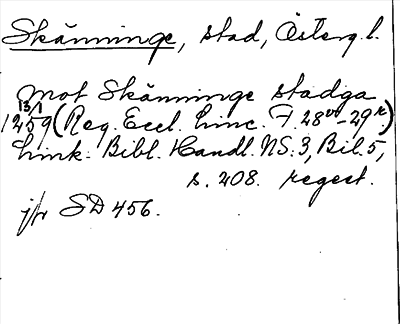 Skänninge, stad, Österg.l.
mot Skänninge stadga
13/1
1259 (Reg. Eccl. Linc. F. 28vo-29r)
Link. Bibl. Handl. NS. 3, Bil. 5,
s. 208. regest.
jfr SD 456.